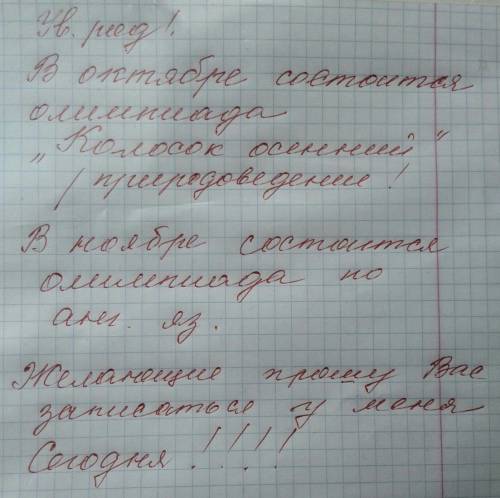 Ув. род!
В октябре состоится
олимпиада
„Колосок осенний“
/природоведение!
В ноябре состоится
олимпиада по
анг. яз.
Желающие прошу Вас
записаться у меня
Сегодня!!!!